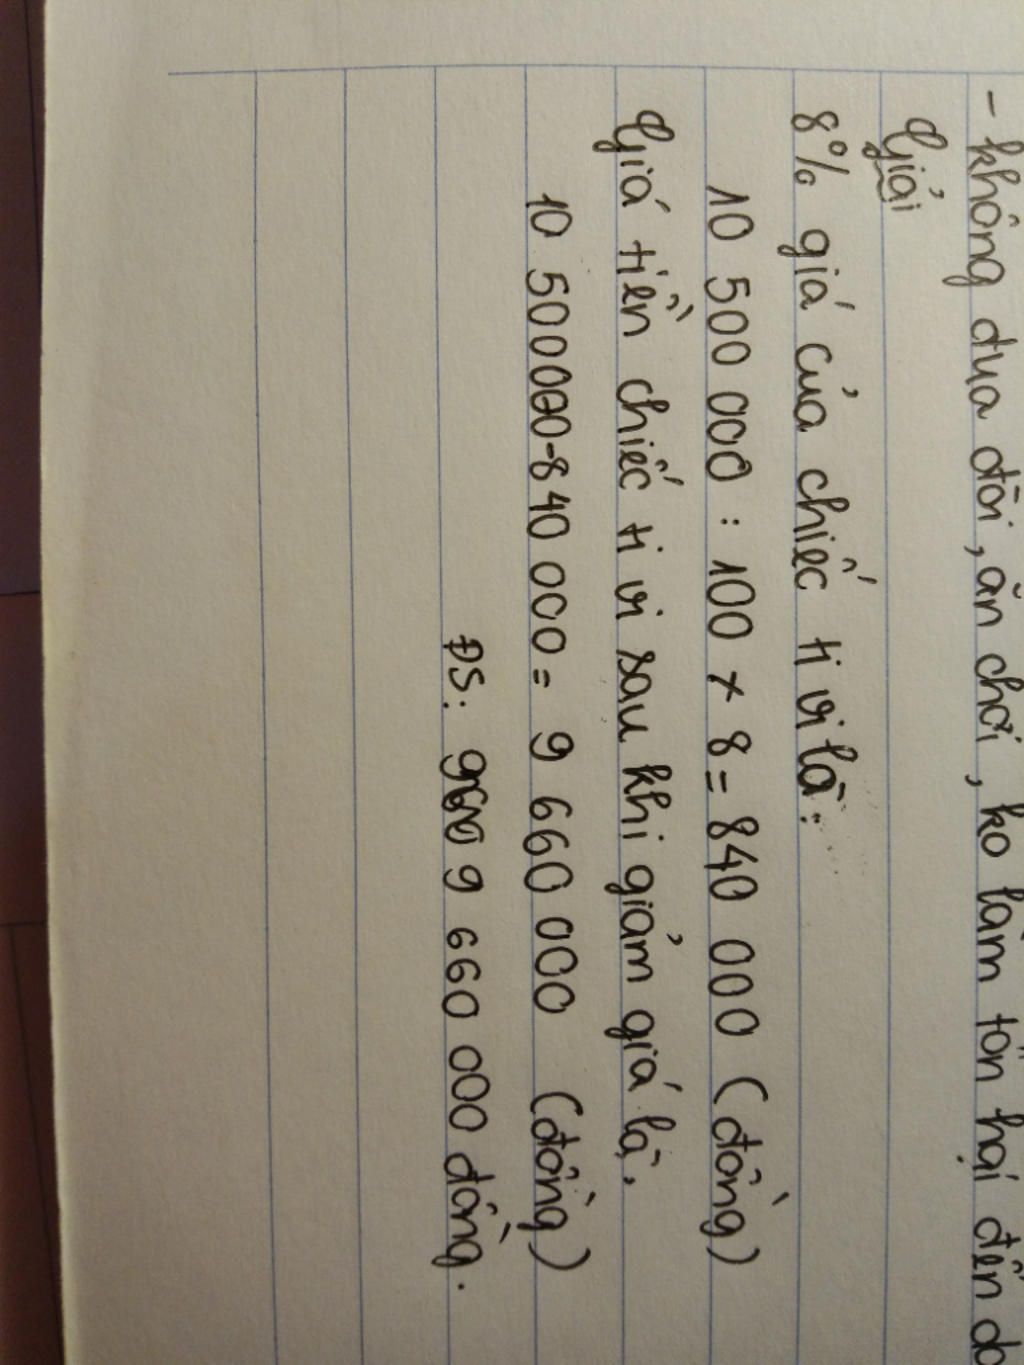 - không đua đòi, ăn chơi, ko làm tổn hại đến
Giải
8% giá của chiếc ti vi là:
10 500 000 : 100 x 8 = 840 000 (đồng)
Giá tiền chiếc ti vi sau khi giảm giá là,
10 500000-840 000 = 9 660 000 (đồng)
ĐS: 9 660 000 đồng.